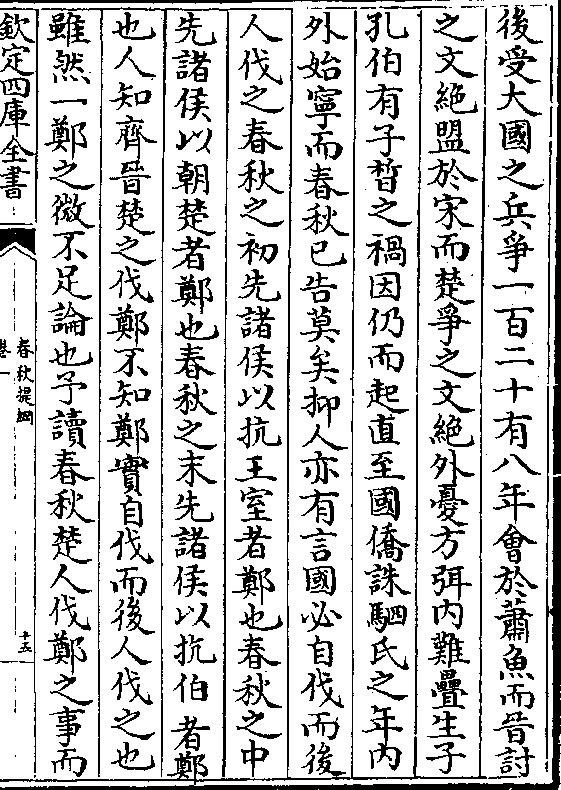 後受大國之兵爭一百二十有八年會於蕭魚而晉討
之文絶盟於宋而楚爭之文絶外憂方弭内難疊生子
孔伯有子晳之禍因仍而起直至國僑誅駟氏之年内
外始寧而春秋已告莫矣抑人亦有言國必自伐而後
人伐之春秋之初先諸侯以抗王室者鄭也春秋之中
先諸侯以朝楚者鄭也春秋之末先諸侯以抗伯者鄭
也人知齊晉楚之伐鄭不知鄭實自伐而後人伐之也
雖然一鄭之微不足論也予讀春秋楚人伐鄭之事而
欽定四庫全書
春秋提綱
卷一
十五